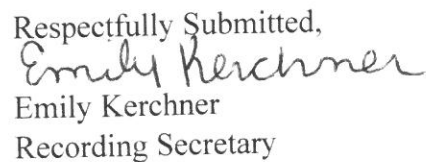 Respectfully Submitted,
Emily Kerchner
Emily Kerchner
Recording Secretary